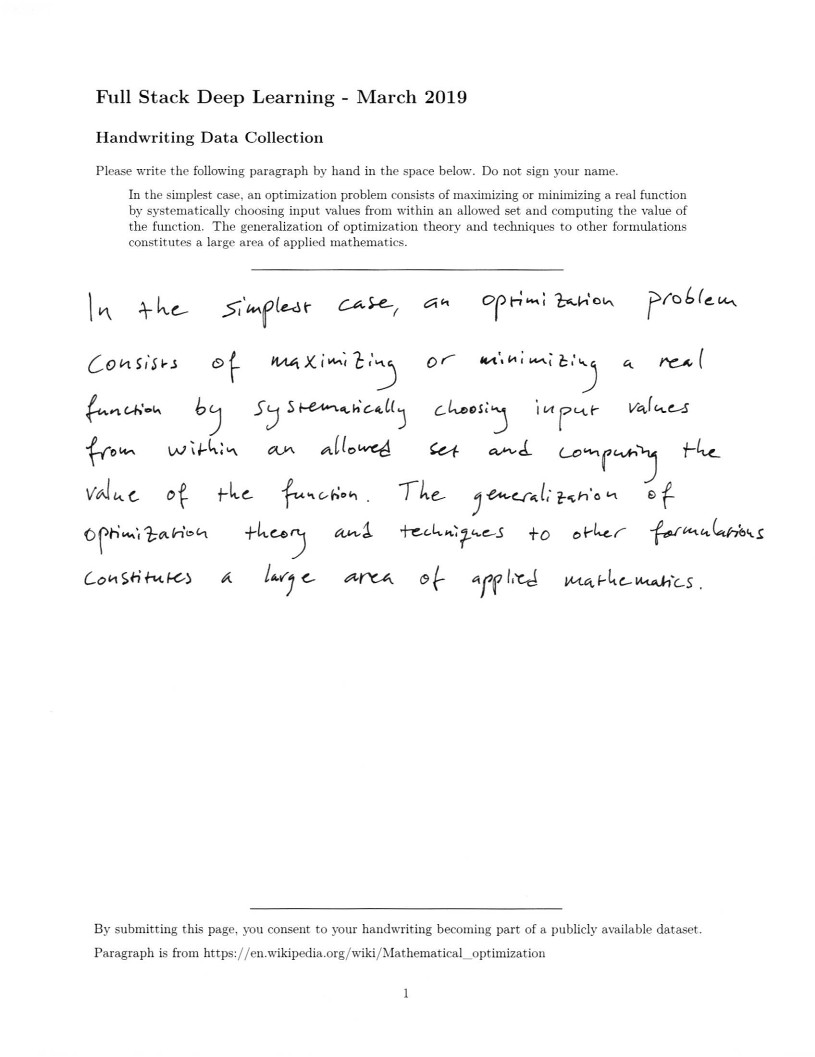 Full Stack Deep Learning - March 2019
Handwriting Data Collection
Please write the following paragraph by hand in the space below. Do not sign your name.
In the simplest case, an optimization problem consists of maximizing or minimizing a real function
by systematically choosing input values from within an allowed set and computing the value of
the function. The generalization of optimization theory and techniques to other formulations
constitutes a large area of applied mathematics.
In the simplest case, an optimization problem
consists of maximizing or minimizing a real
function by systematically choosing input values
from within an allowed set and computing the
value of the function. The generalization of
optimization theory and techniques to other formulations
constitutes a large area of applied mathematics.
By submitting this page, you consent to your handwriting becoming part of a publicly available dataset.
Paragraph is from https://en.wikipedia.org/wiki/Mathematical_optimization
1